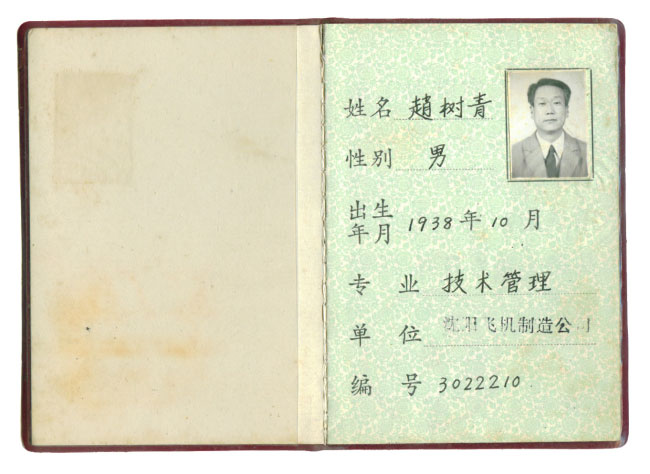 姓名 趙树青
性别 男
出生年月 1938年10月
专业 技术管理
单位 沈阳飞机制造公司
编号 3022210